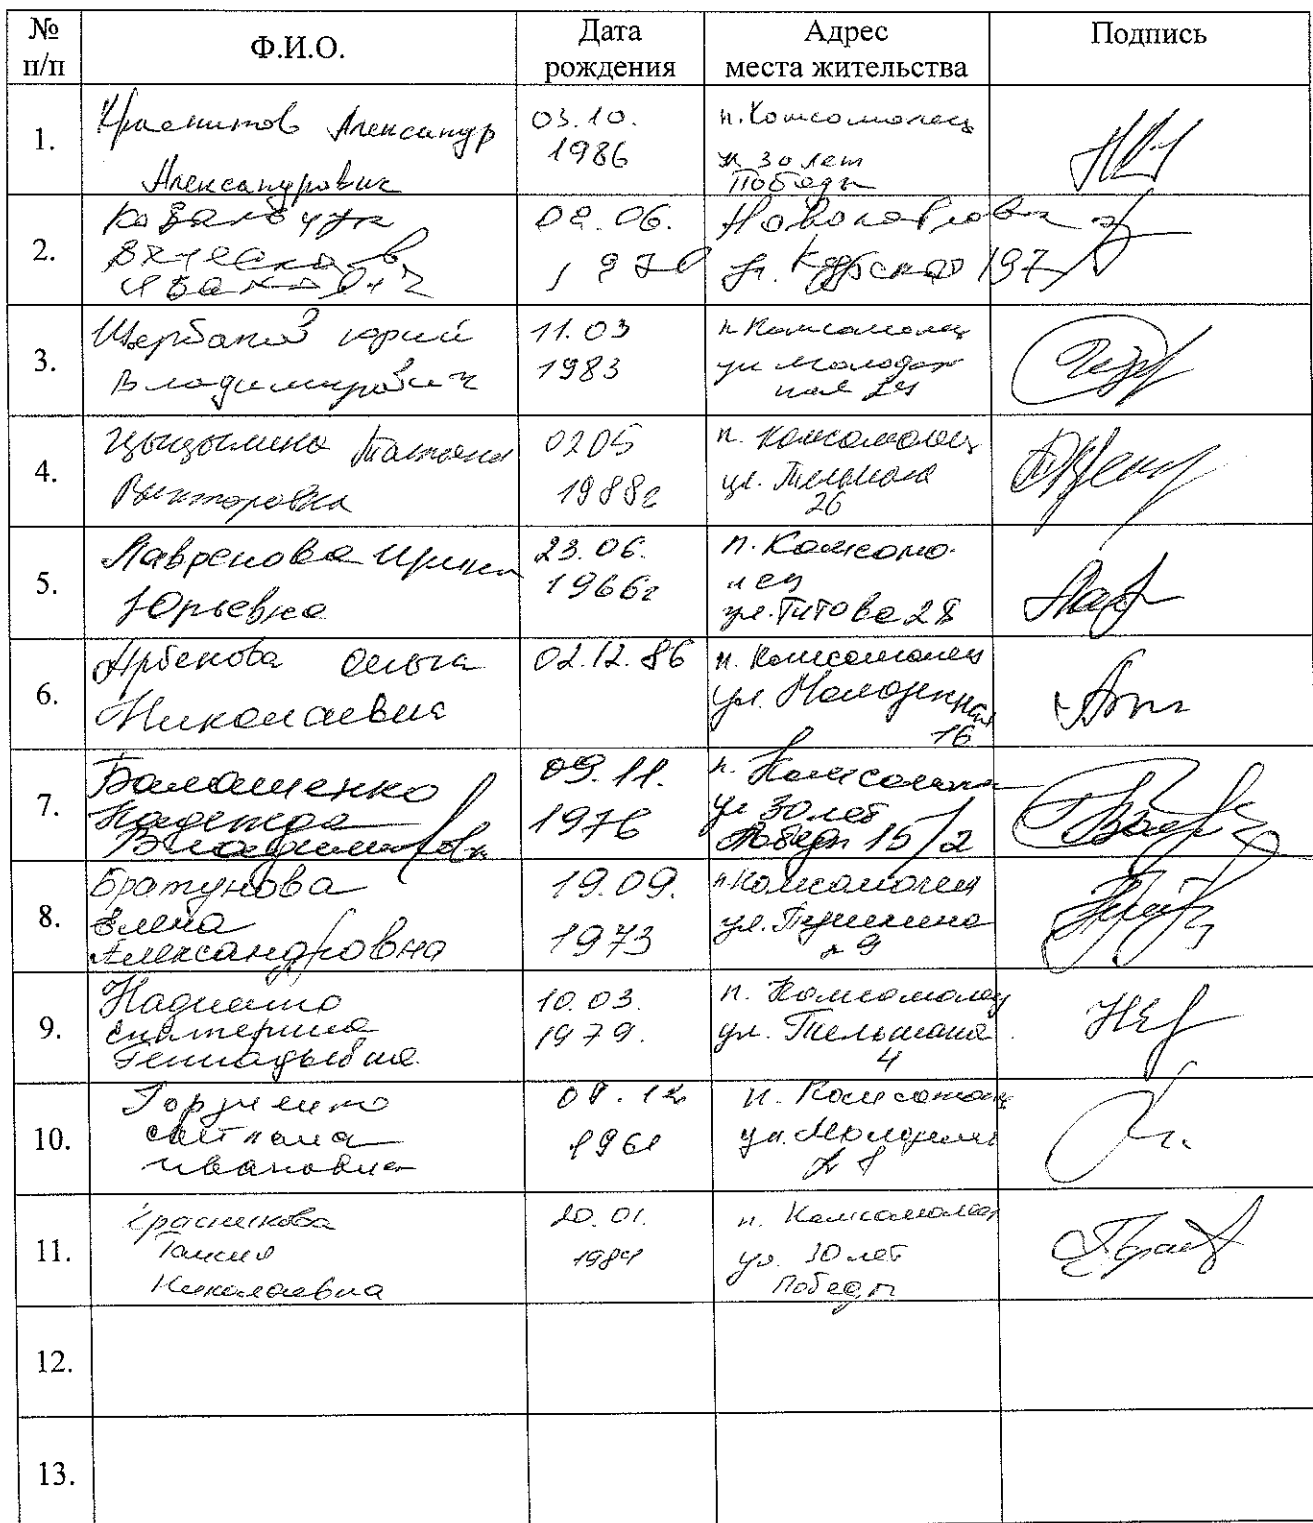 № п/п
Ф.И.О.
Дата рождения
Адрес места жительства
Подпись
1.
Александр
Александрович
03.10.
1986
п. Комсомолец
ул 30 лет
Победы
2.
Ковальчук
Вячеслав
Иванович
06.
ул. Курская 197
3.
Щербаков Юрий
Владимирович
11.03
1983
п Комсомолец
ул Молодеж
ная
4.
Татьяна
Викторовна
0205
1988г
п. Комсомолец
ул. Тельмана
26
5.
Лавренова Ирина
Юрьевна
23.06.
1966г
п. Комсомо
лец
ул. Титова 28
6.
Арбекова Ольга
Николаевна
02.12.86
п. Комсомолец
ул. Молодежная
16
7.
Балашенко
Надежда
Владимировна
09.11.
1976
п. Комсомолец
ул 30 лет
Победы 15/2
8.
Братунова
Елена
Александровна
19.09.
1973
п Комсомолец
ул. Пушкина
9
9.
Екатерина
Геннадьевна
10.03.
1979.
п. Комсомолец
ул. Тельмана
4
10.
Светлана
Ивановна
12
1961
п. Комсомолец
ул. Молодежн
11.
Красникова
Таисия
Николаевна
20.01.
1984
п. Комсомолец
ул. 30 лет
Победы
12.
13.